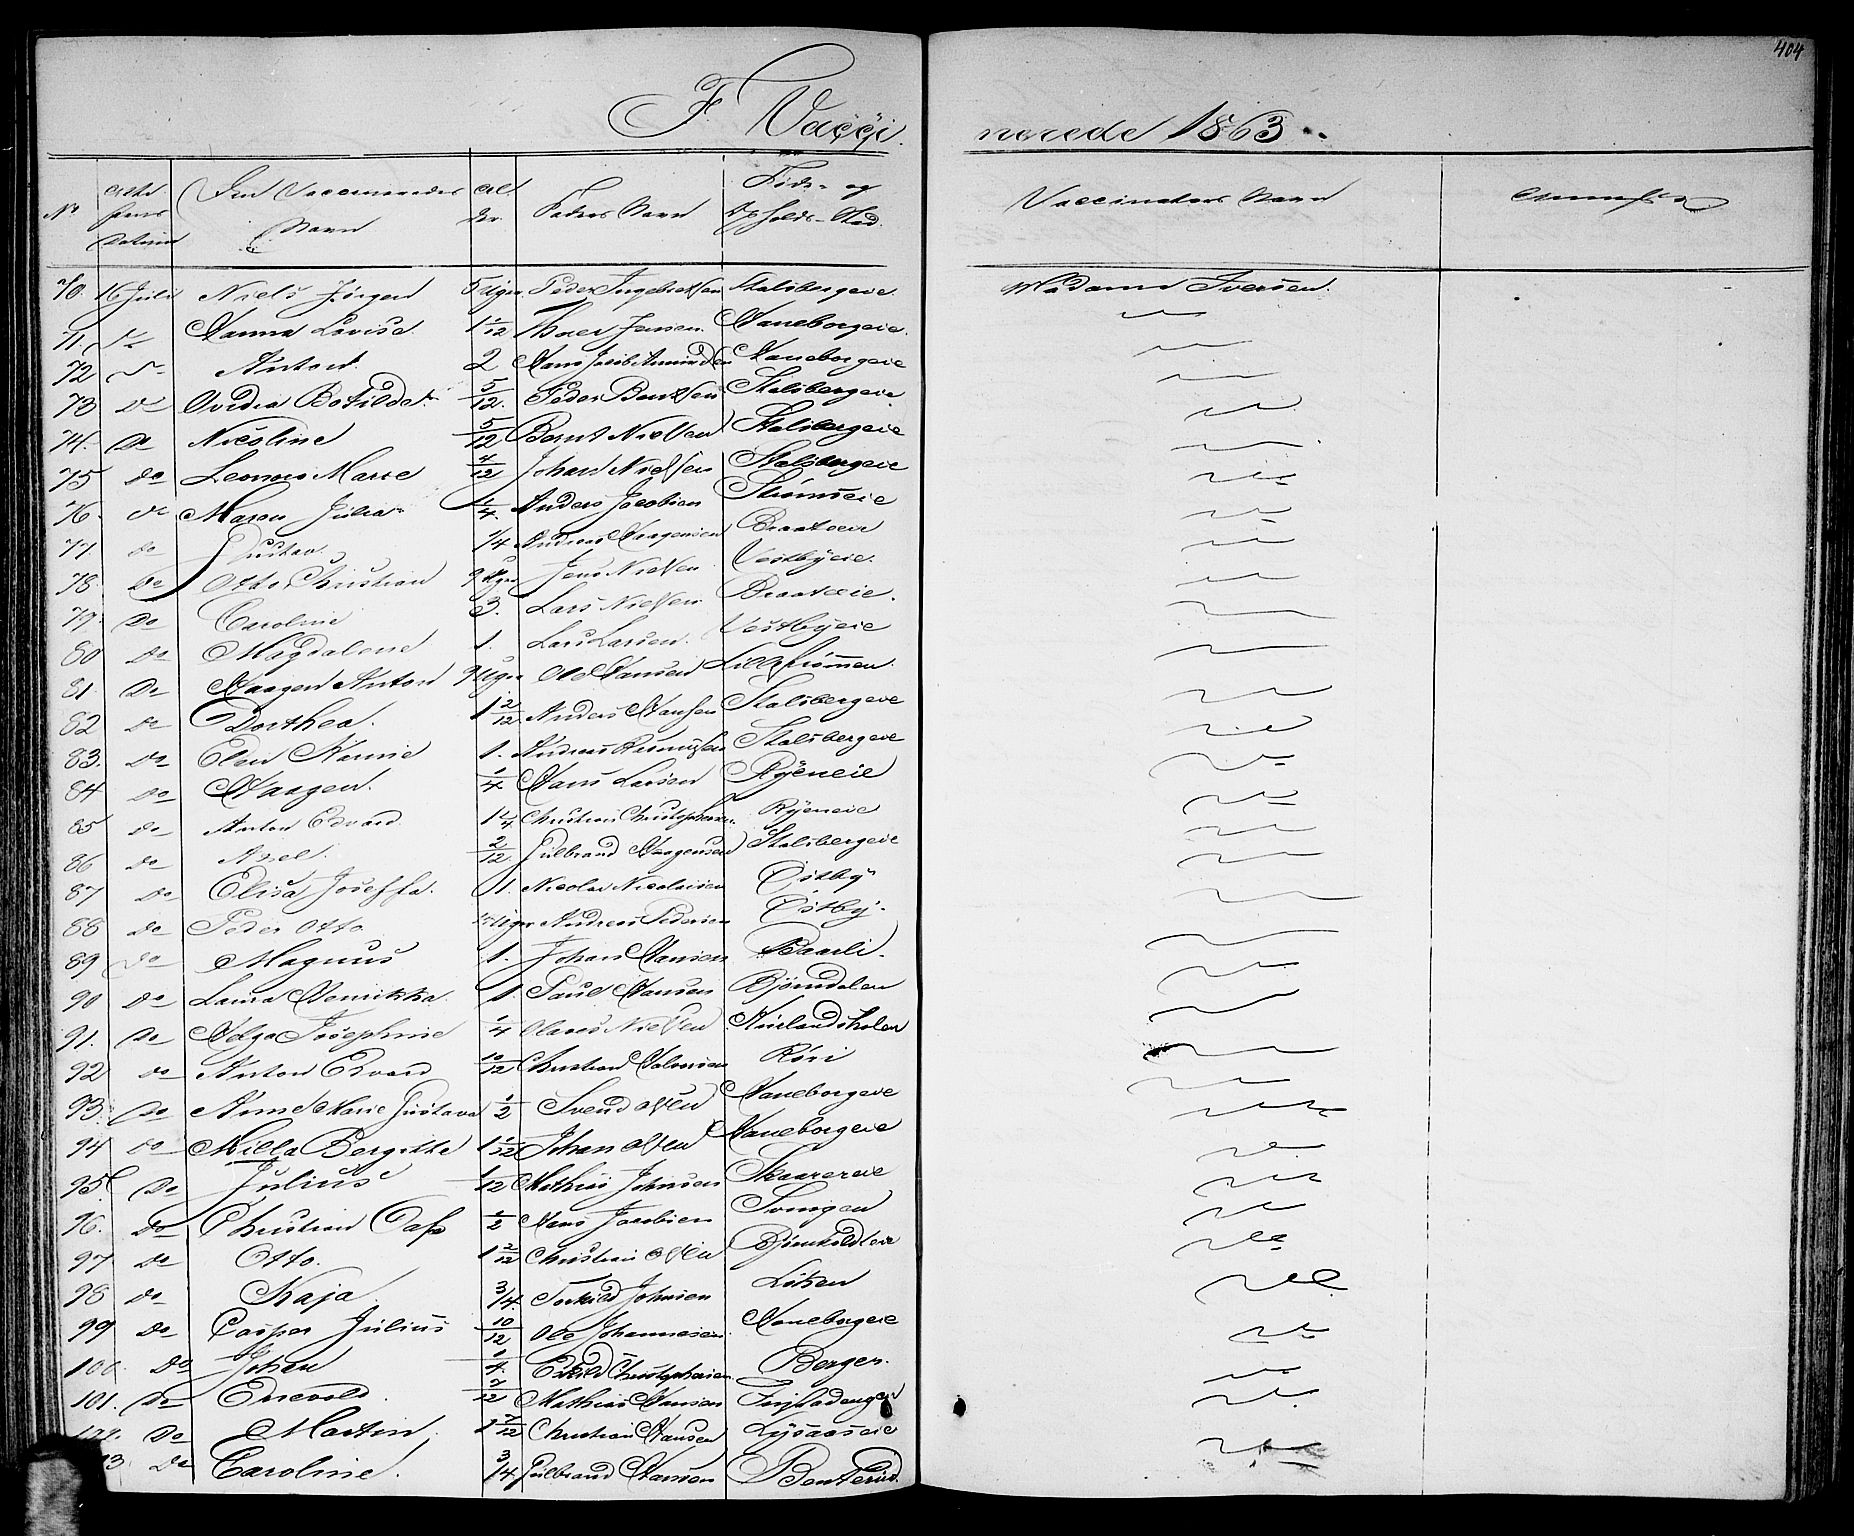 404
F. Vacçi. nerede 1863.
No Datum Den Vaccineredes Navn Alder. Fadrens Navn Føde- og Opholds-Sted. Vaccinateur Navn
70. 16 Juli Niels Jørgen 5 Uger Peder Ingebretsen Stalsbergeie Madame Iversen
71. Hanna Lovise 1 1/12 Thoer Jensen Haneborgeie.
72 Anton. 2 Hans Jacob Amundsen Haneborgeie
73 Do Ovedia Botilde 5/12. Peder Bentsen Stalsbergeie
74. Do Nicoline 5/12 Bernt Nielsen Stalsbergeie
75 Do Leonore Marie 4/12 Johan Nielsen Stalsbergeie
76. Do Maren Julia 1/4 Anders Jacobsen Strømseie
77. Do Gustav 1/4 Andreas Haagensen Braateeie
78. Do Otto Christian 9 Uger Jens Nielsen Vestbyeie.
79. Do Caroline 3. Lars Nielsen Braateeie.
80 Do Magdalene 1. Lars Larsen. Vestbyeie
81. Do Haagen Anton 9 Uger Ole Hansen Lillestrømmen.
82 Do Dorthea. 1 2/12. Anders Hansen Stalsbergeie
83. Do Elen Karine 1. Andreas Rasmussen Stalsbergeie
84 Do Haagen. 1/4 Hans Larsen Ryeneie
85 Do Anton Edvard. 1 1/4 Christian Christophersen. Ryeneie
86 Do Axel. 2/12 Gulbrand Haagensen Stalsbergeie
87 Do Elisa Joseffa. 1. Nicolai Nicolaisen Østby
88 Do Peder Otto Uger Andreas Pedersen Østby.
89 Do Magnus 1. Johan Hansen Baarli.
90 Do Laura Henrikka. 1. Paul Hansen Bjørndalen
91. Do Helga Josephine 1/4 Olaves Nielsen
92 Do Anton Edvard 10/12 Christian Halvorsen Røri
93. Do Anne Marie Gustava 1/2 Svend Olsen Haneborgeie
94 Do Milla Bergitte 1 1/12 Johan Olsen Haneborgeie
95. Do Julius 1/12 Mathias Johnsen Skaarereie
96. Do Christian 1/2 Hans Jacobsen Svingen
97 Do Otto. 1 2/12 Christian Olsen
98 Do Kaja 3/4 Torkild Johnsen Løken
99 Do Casper Julius 10/12 Ole Johannesen. Haneborgeie
100. Do Johan 1/4. Christophersen Berger.
101. Do Enevold. 7/12 Mathias Hansen
Do Martin. 1 7/12 Christian Hansen Lysaaseie
3. Do Caroline. 3/4 Gulbrand Hansen Benterud.